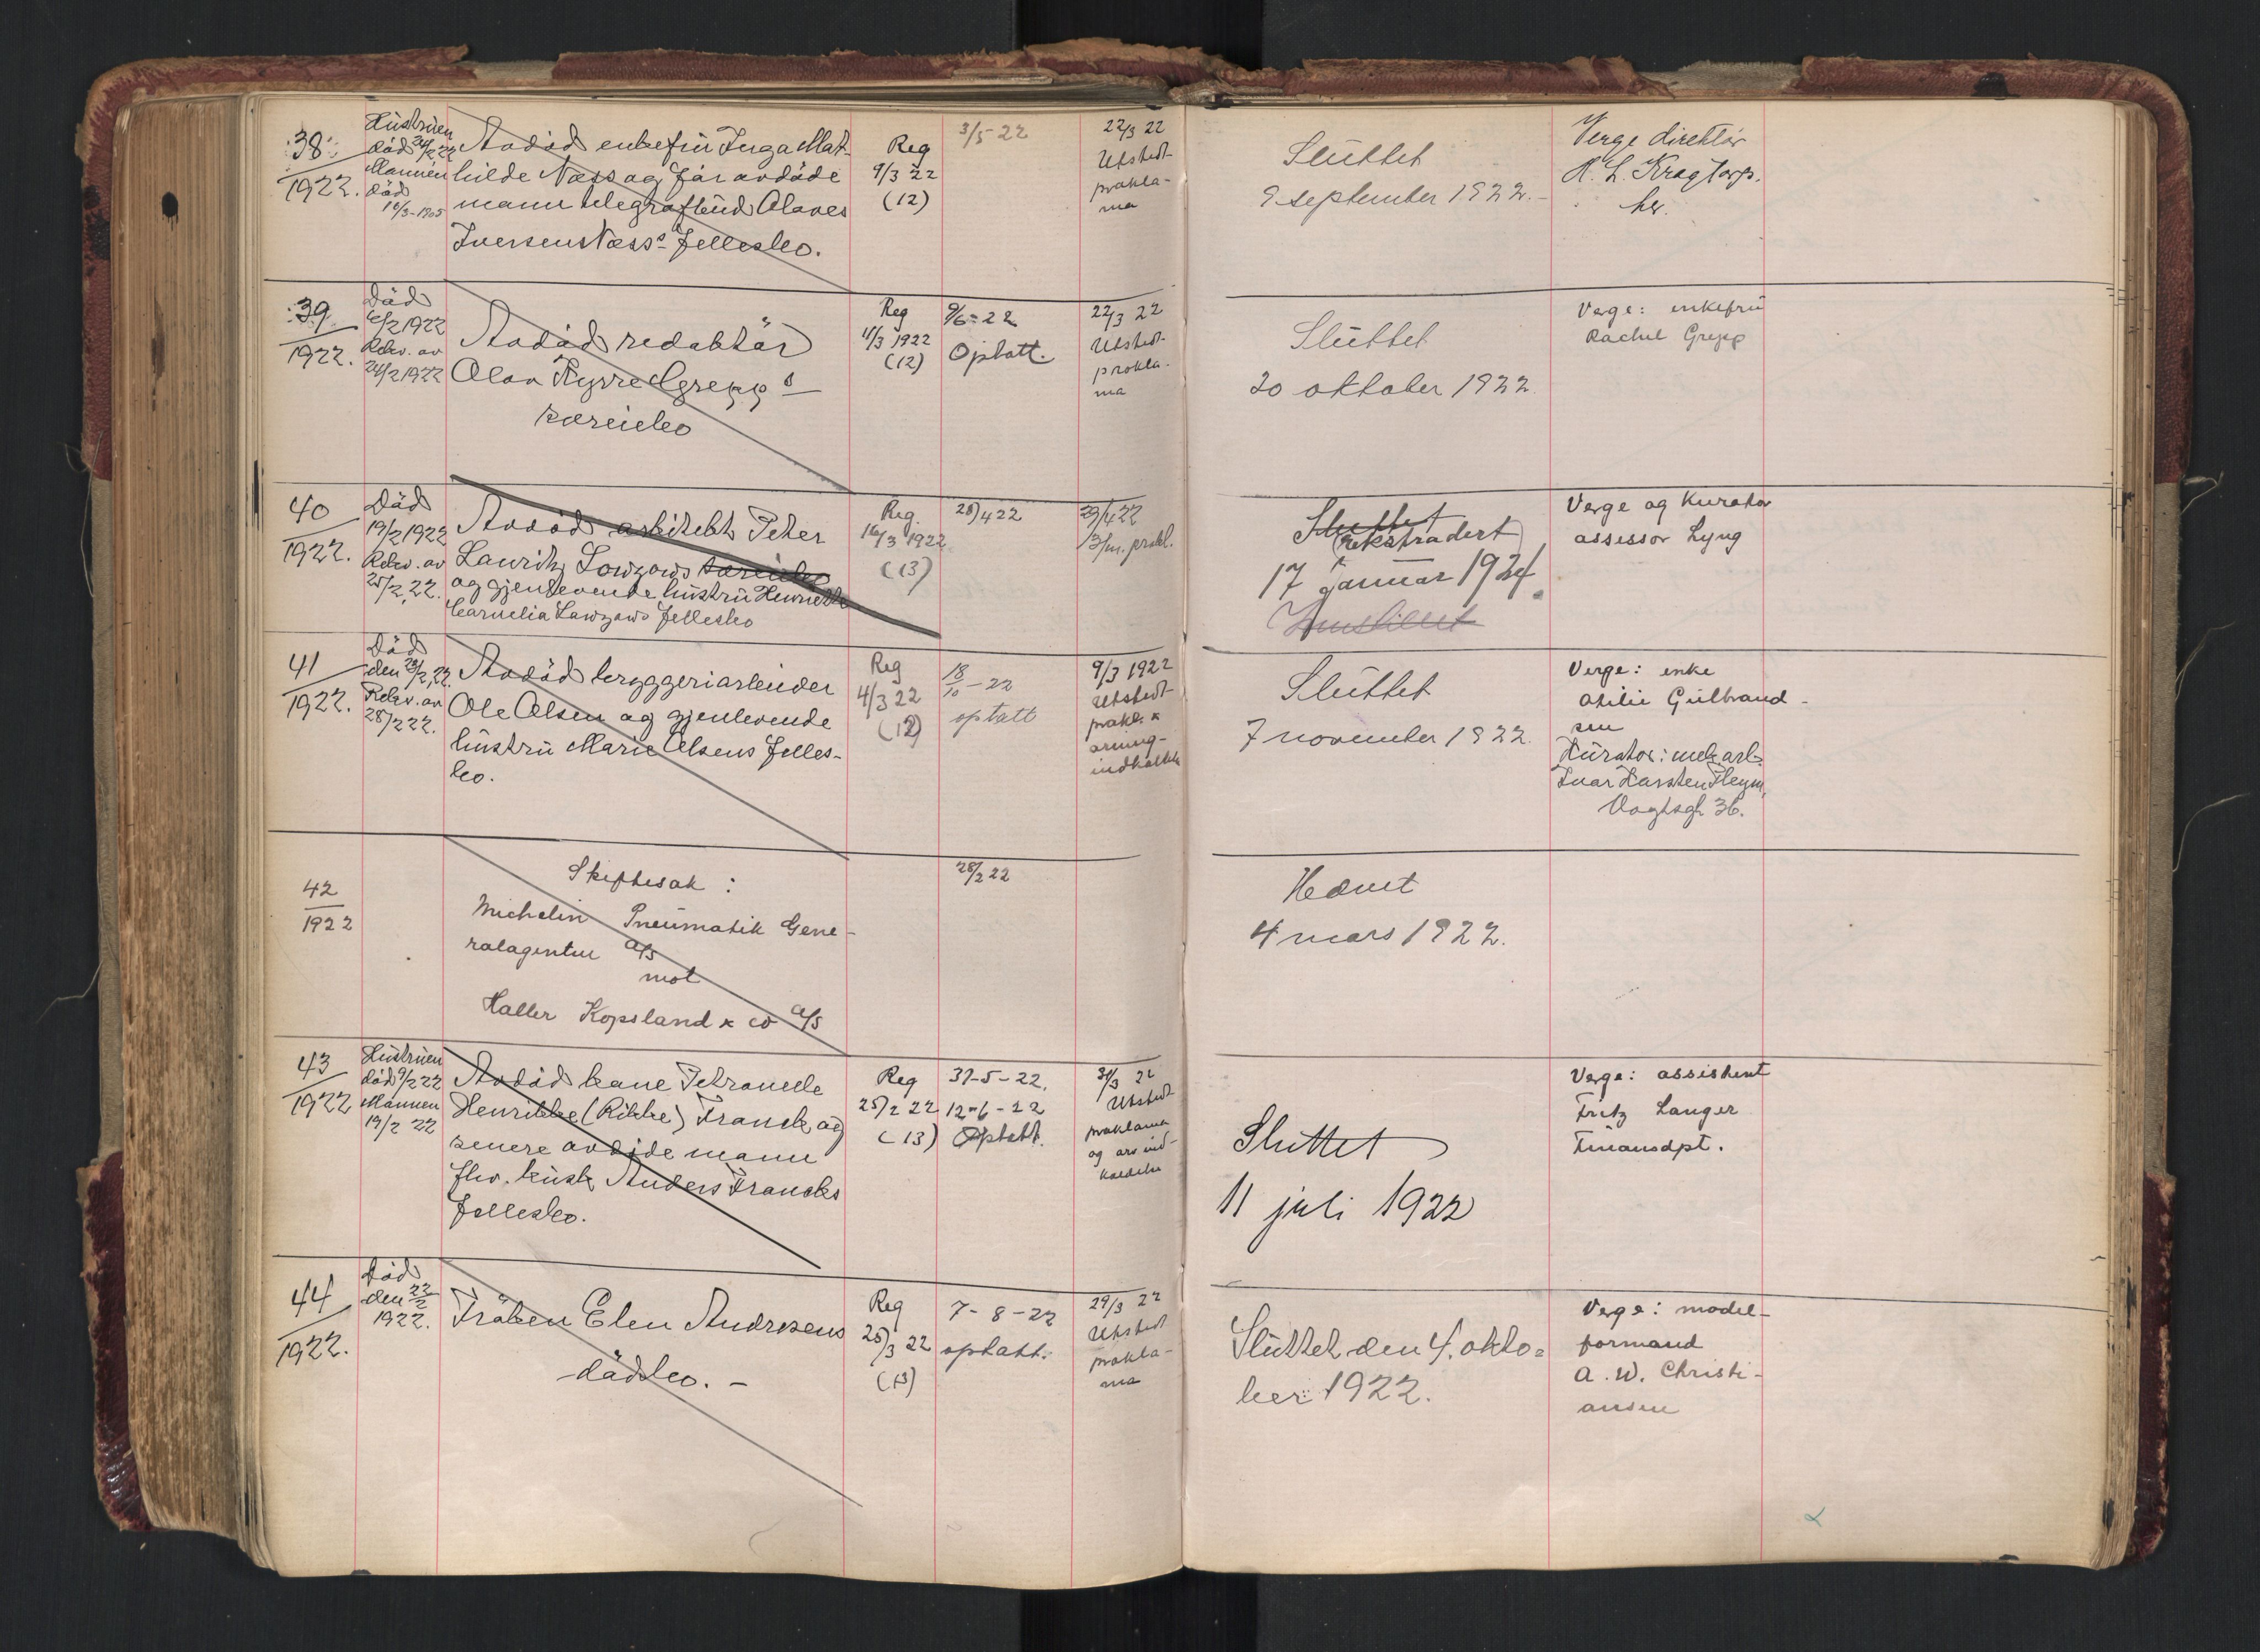 38
1922.
Hustruen
död 24/2 22
Mannen
död
16/3-1905
Avdöd enkefru Inga Mat-
hilde Næss og før avdöde
mann telegrafbud Olaves
Iversen Næss's fellesbo.
Reg
9/3 22
(12)
3/5-22
22/3 22
Utstedt
prokla-
ma
Sluttet
9 september 1922.-
Verge direktør
H. L. Kragtorp.
her.
39
1922.
Död
6/2 1922
Rekv. av
24/2 1922
Avdöd redaktör
Olav Kyrre Grepp's
særeiebo
Reg
11/3 1922
(12)
9/6-22
Optatt.
22/3 22
Utstedt
prokla-
ma
Sluttet
20 oktober 1922.
Verge: enkefru
Rachel Grepp
40
1922.
Död
19/2 1922
Rekv. av
25/2 22.
Avdöd arkitekt Peter
Lauritz Lowzows særeiebo
og gjenlevende hustru Henriette
Cornelia Lowzows fellesbo
Reg.
16/3 1922
(13)
28/4 22
29/4 22
13/m. prokl.
Sluttet
(ekstradert)
17 januar 1924.
Innstillet
Verge og Kurator
assessor Lyng
41
1922.
Död
den 23/2 22.
Rekv. av
28/2 22.
Avdöd bryggeriarbeider
Ole Olsen og gjenlevende
hustru Marie Olsens felles-
bo.
Reg
4/3 22
(12)
18/10-22
optatt
9/3 1922
Utstedt
prokl. &
arving-
indkaldelse
Sluttet
7 november 1922.
Verge: enke
Otilie Gulbrand-
sen
Kurator: mek. arb.
Ivar Karsten Fleym,
Vogtsgt 36.
42
1922
Skiftesak:
Michelin Pneumatik Gene-
ralagentur A/S
mot
Haller Kopsland & Co A/S
28/2 22
Hævet
4 mars 1922.
43
1922
Hustruen
död 9/2 22
Mannen
19/2 22
Avdöd kone Petronelle
Henrikke (Rikke) Franck og
senere avdøde mann
fhv. kusk Anders Francks
fellesbo.
Reg
25/2 22
(13)
31-5-22.
12-6-22
Optatt.
31/3 22
Utstedt
proklama
og arv ind-
kaldelse
Sluttet
11 juli 1922
Verge: assistent
Fritz Langer
Finansdpt.
44
1922.
Död
den 22/2
1922.
Fröken Elen Andresens
dödsbo.-
Reg
25/3 22
(13)
7-8-22
optatt.
29/3 22
Utstedt
prokla-
ma
Sluttet den 4. okto-
ber 1922.
Verge: model-
formand
A. W. Christi-
ansen